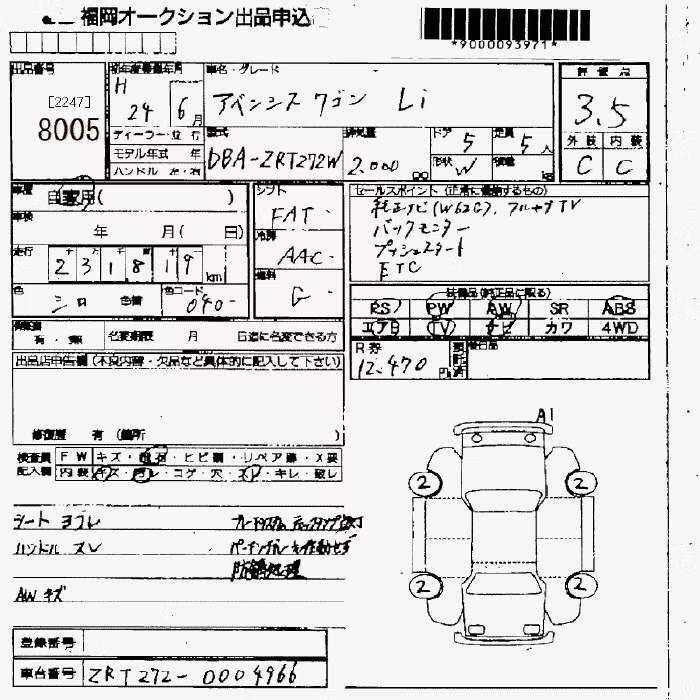 福岡オークション出品申込
*9000093971*
出品番号
[2247]
8005
初年度登録年月
H 24 6月
ディーラー・並行
モデル年式 年
ハンドル 左・右
車名・グレード
アベンシスワゴン Li
型式
DBA-ZRT272W
排気量
2.000 cc
ドア 5
定員 5人
形状 W
積載 kg
評価点
3.5
外装 内装
C C
車歴
自家用( )
車検
年 月( 日)
走行
231819 km
色
シロ 色替
色コード
040-
シフト
FAT-
冷房
AAC-
燃料
G-
セールスポイント(正常に機能するもの)
純正ナビ(W62G)、フルセグTV
バックモニター
プッシュスタート
ETC
装備品(純正品に限る)
PS PW AW SR ABS
エアB TV ナビ カワ 4WD
有・無
名変期限 月 日迄に名変できる方
R券
12.470円
後日品
出品店申告欄(不良内容・欠品など具体的に記入して下さい)
修復歴 有(箇所 )
検査員 FW キズ・飛石・ヒビ割・リペア跡・X要
記入欄 内装 キズ・汚レ・コゲ・穴・スレ・キレ・破レ
シート ヨゴレ
ハンドル スレ
防錆処理
AW キズ
A1
2 2
2 2
登録番号
車台番号 ZRT272-0004966